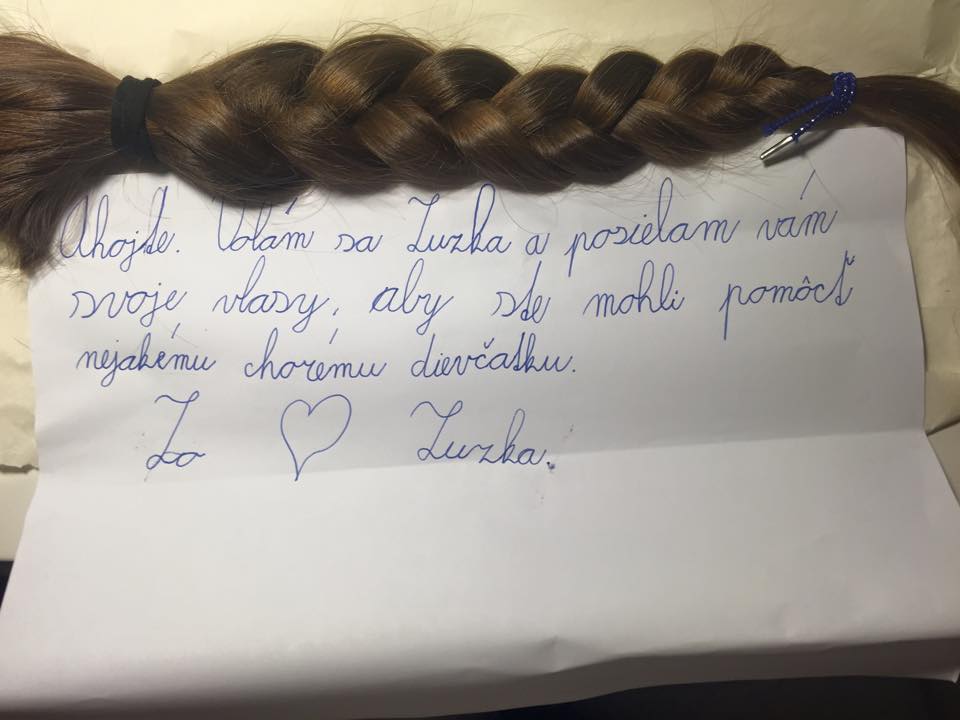 Ahojte. Volám sa Zuzka a posielam vám
svoje vlasy, aby ste mohli pomôcť
nejakému chorému dievčatku.
Zo ♡ Zuzka.